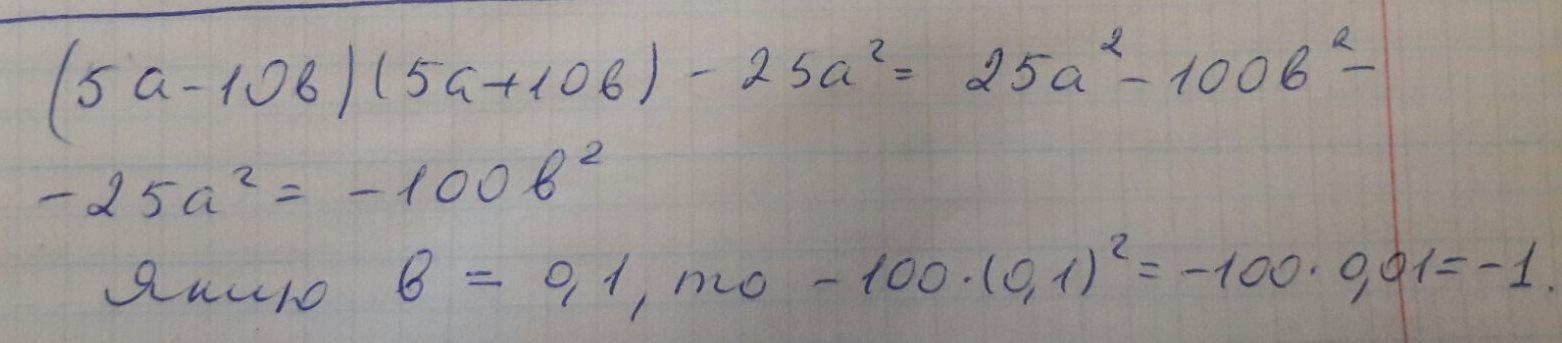 (5a-10в)(5a+10в) - 25a² = 25a² - 100в² -
- 25a² = - 100в²
Якщо в = 0,1, то - 100·(0,1)² = -100·0,01 = -1.